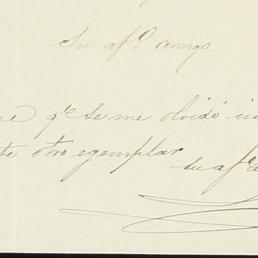 Su af.º amigo
qe se me olvidó
otro egemplar
su af.